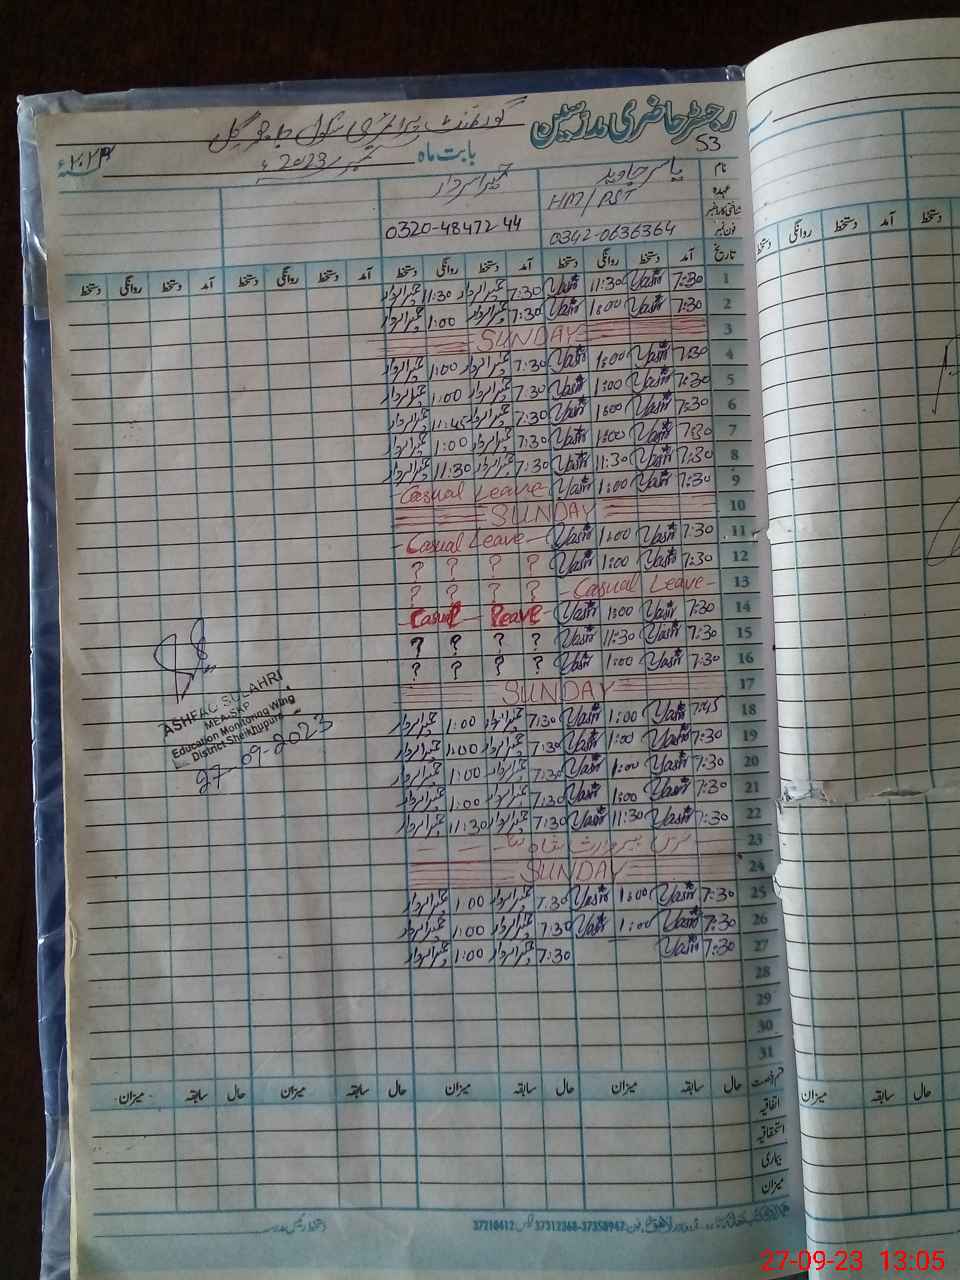 رجسٹر حاضری مدرسین
گورنمنٹ پرائمری سکول
53
بابت ماہ ستمبر 2023ء
نام یاسر جاوید
عہدہ HM/PST
شناختی کارڈ نمبر
فون نمبر 0342-0636364 0320-4847244
تاریخ آمد دستخط روانگی دستخط آمد دستخط روانگی دستخط آمد دستخط روانگی دستخط آمد دستخط روانگی دستخط
1 7:30 Yasir 11:30 Yasir 7:30 11:30
2 7:30 Yasir 1:00 Yasir 7:30 1:00
3 SUNDAY
4 7:30 Yasir 1:00 Yasir 7:30 1:00
5 7:30 Yasir 1:00 Yasir 7:30 1:00
6 7:30 Yasir 1:00 Yasir 7:30 11:45
7 7:30 Yasir 1:00 Yasir 7:30 1:00
8 7:30 Yasir 11:30 Yasir 7:30 11:30
9 7:30 Yasir 1:00 Yasir Casual Leave
10 SUNDAY
11 7:30 Yasir 1:00 Yasir Casual Leave
12 7:30 Yasir 1:00 Yasir ? ? ? ?
13 Casual Leave ? ? ? ?
14 7:30 Yasir 1:00 Yasir Casual Leave
15 7:30 Yasir 11:30 Yasir ? ? ? ?
16 7:30 Yasir 1:00 Yasir ? ? ? ?
17 SUNDAY
18 7:45 Yasir 1:00 Yasir 7:30 1:00
19 7:30 Yasir 1:00 Yasir 7:30 1:00
20 7:30 Yasir 1:00 Yasir 7:30 1:00
21 7:30 Yasir 1:00 Yasir 7:30 1:00
22 7:30 Yasir 11:30 Yasir 7:30 11:30
23 عرس پیر وارث شاہ
24 SUNDAY
25 7:30 Yasir 1:00 Yasir 7:30 1:00
26 7:30 Yasir 1:00 Yasir 7:30 1:00
27 7:30 Yasir 7:30 1:00
28
29
30
31
ASHFAQ SULAHRI
MEA-SKP
Education Monitoring Wing
District Sheikhupura
27-09-2023
قسم رخصت حال سابقہ میزان حال سابقہ میزان حال سابقہ میزان حال سابقہ میزان
اتفاقیہ
استحقاقیہ
بیماری
میزان
37210412 37312368-37358947
دستخط رئیس مدرسہ
آمد دستخط روانگی دستخط
حال سابقہ میزان
27-09-23 13:05